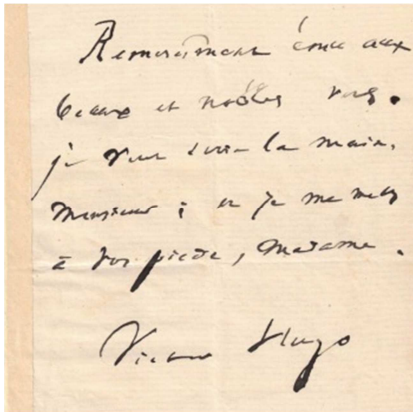 Remerciement ému aux
beaux et nobles vers.
je vous serre la main,
Monsieur ; et je me mets
à vos pieds, Madame.
Victor Hugo